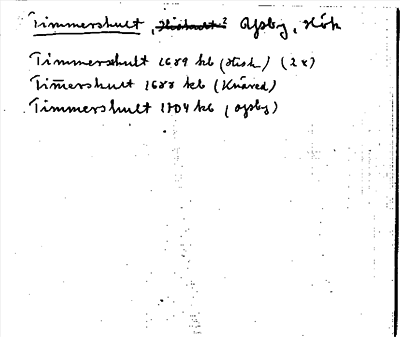 Timmershult, Hishult? Ösby, Hök
Timmershult 1689 kb (Hish.) (2x)
Tim̄ershult 1688 kb (Knäred)
Timmershult 1704 kb (Ösby)